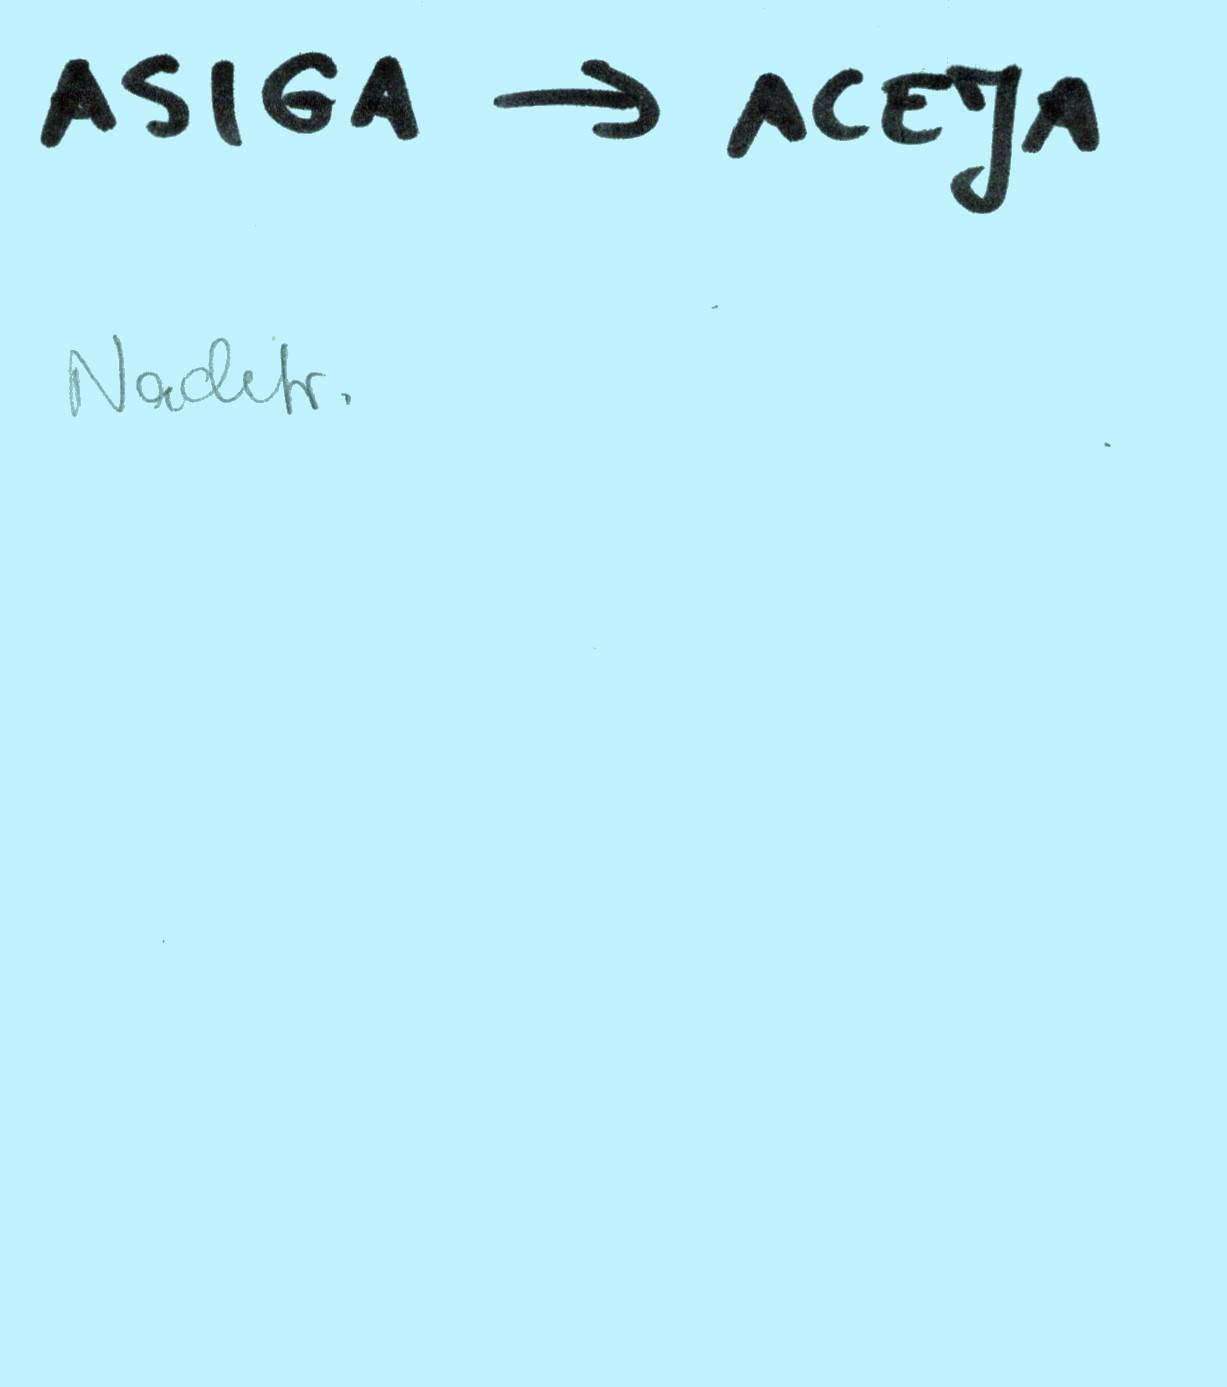 ASIGA → ACEJA
Nachtr.